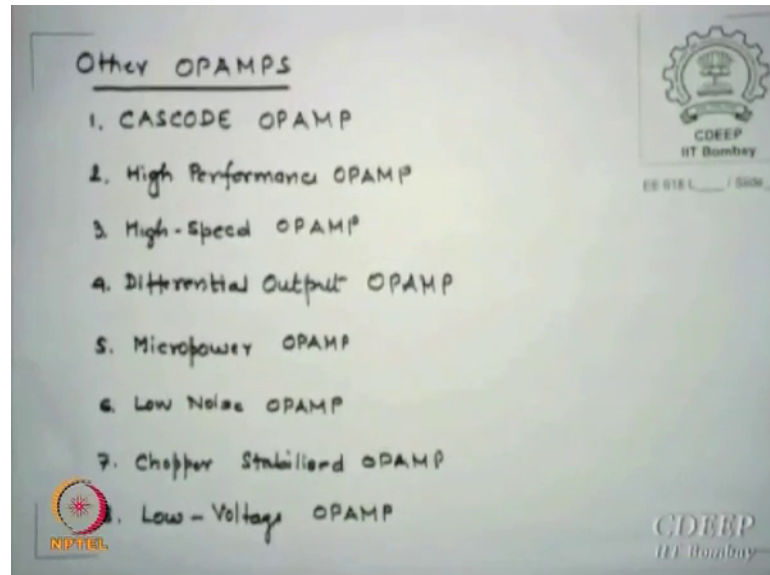 Other OPAMPS
1. CASCODE OPAMP
2. High Performance OPAMP
3. High-Speed OPAMP
4. Differential Output OPAMP
5. Micropower OPAMP
6. Low Noise OPAMP
7. Chopper Stabilised OPAMP
. Low-Voltage OPAMP
CDEEP
IIT Bombay
EE 618 L / Slide
NPTEL
CDEEP
IIT Bombay